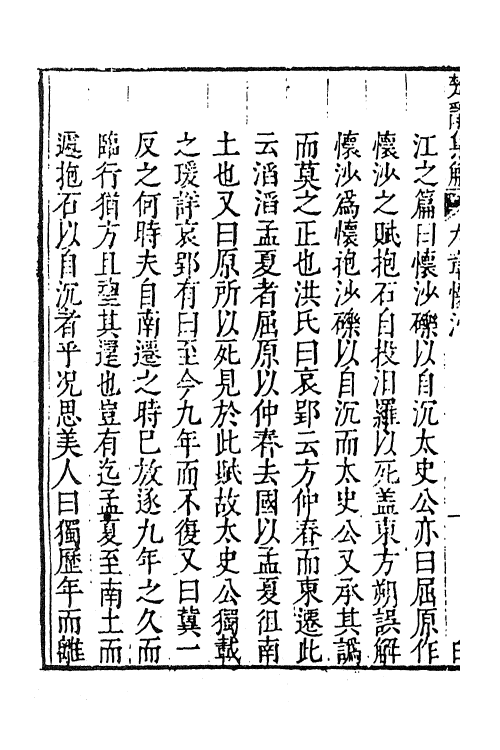 楚辭集解 九章懷沙
江之篇曰懷沙礫以自沉太史公亦曰屈原作
懷沙之賦抱石自投汨羅以死蓋東方朔誤解
懷沙爲懷抱沙礫以自沉而太史公又承其譌
而莫之正也洪氏曰哀郢云方仲春而東遷此
云滔滔孟夏者屈原以仲春去國以孟夏徂南
土也又曰原所以死見於此賦故太史公獨載
之瑗詳哀郢有曰至今九年而不復又曰冀一
反之何時夫自南遷之時已放逐九年之久而
臨行猶方且望其還也豈有迄孟夏至南土而
遽抱石以自沉者乎况思美人曰獨歷年而離